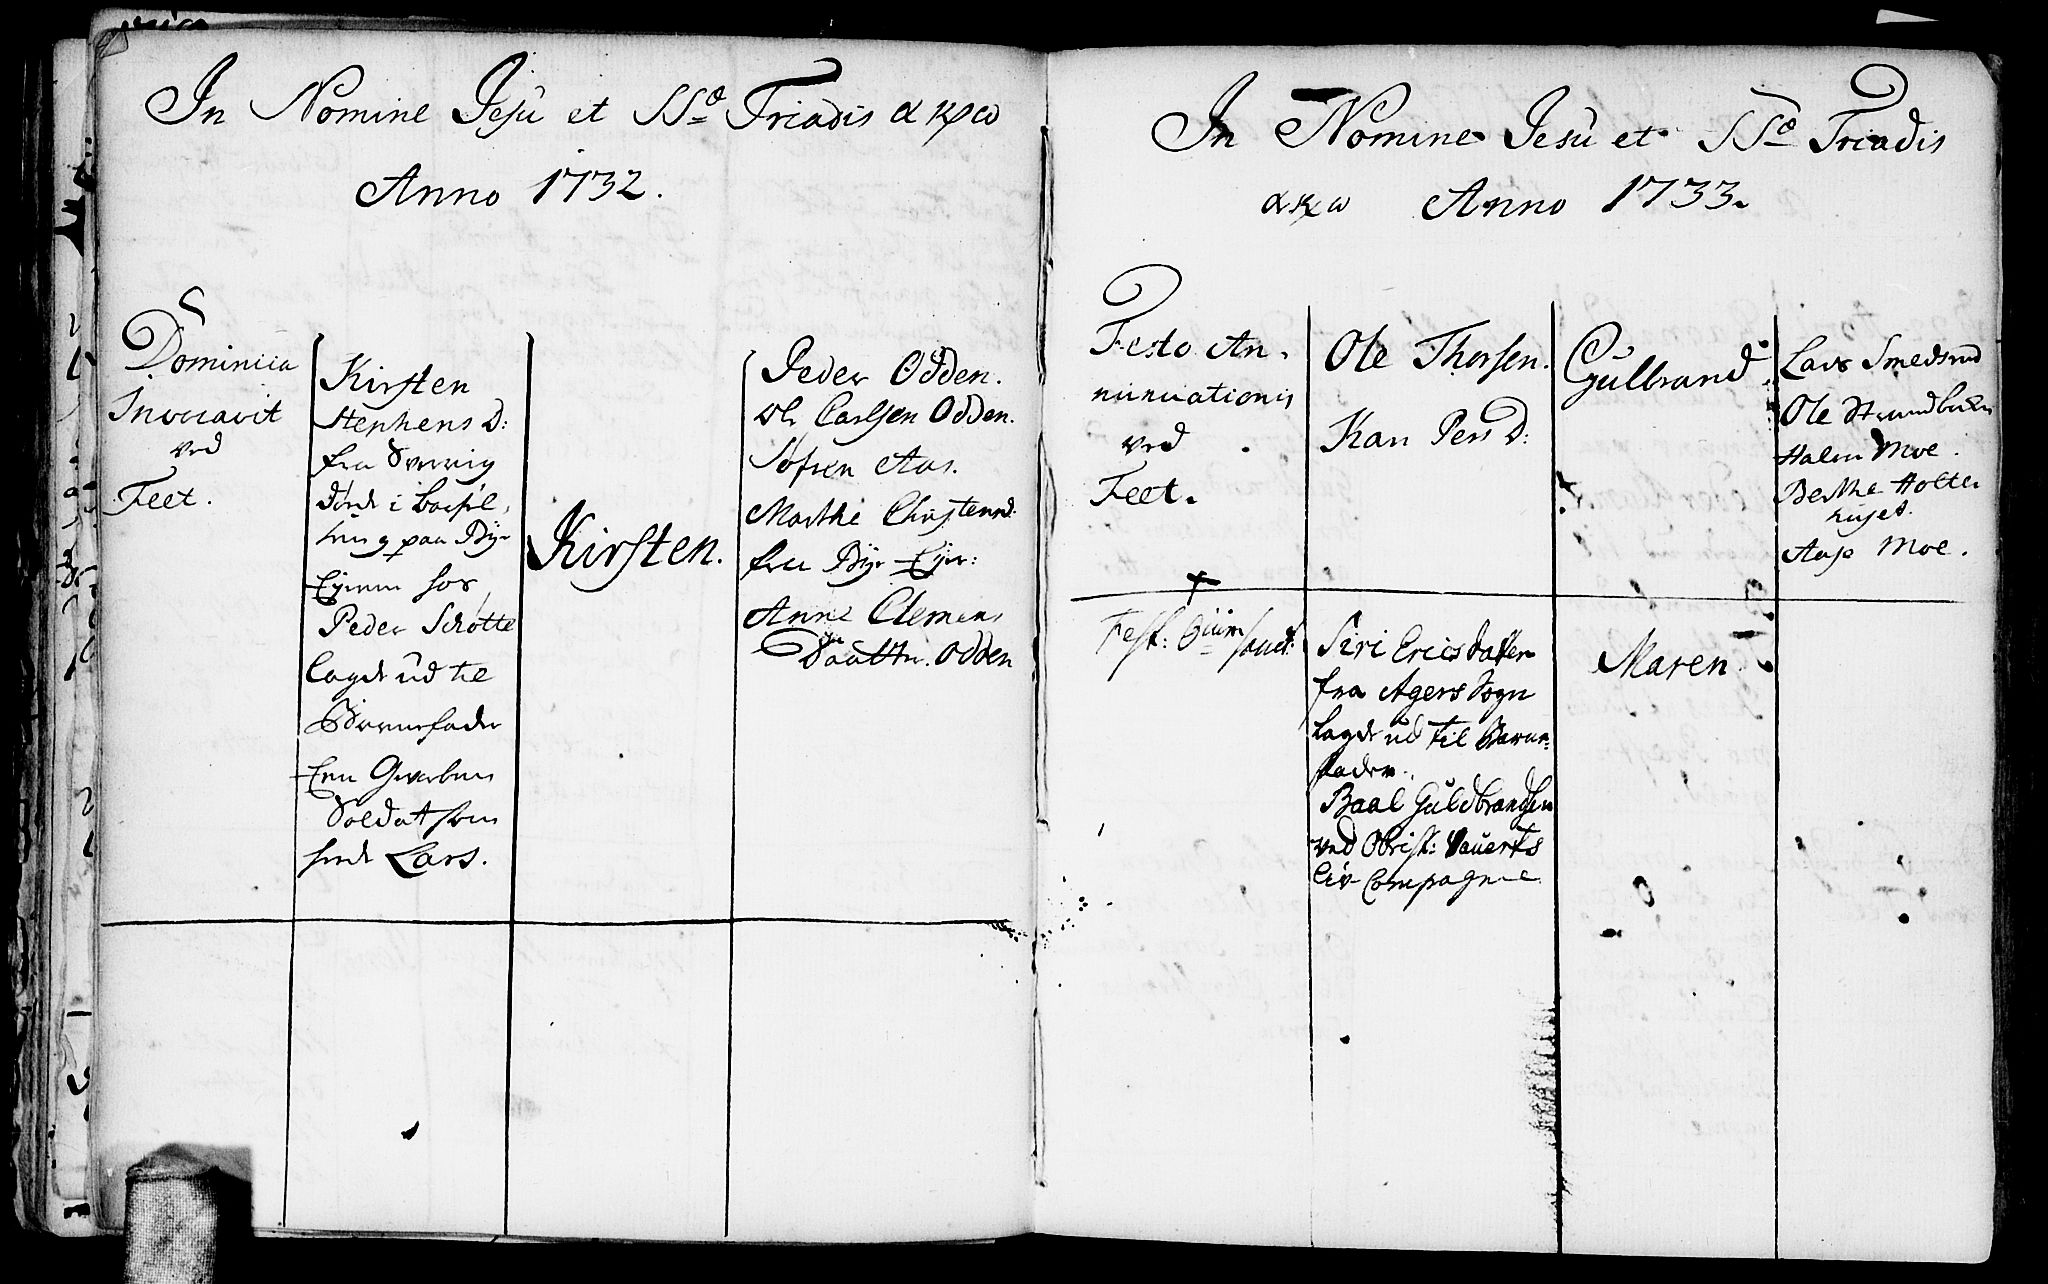 In Nomine Jesu et SSæ Triadis α κχ ω
Anno 1732.
Dominica
Invocavit
ved
Feet.
Kirsten
Stephens D:
fra Sverrig
paa Bÿr
hos
Peder Schøtte
lagde ud til
Barnefader
Een
Soldat som
heed Lars.
Kirsten.
Peder Odden.
Ole Carlsen Odden.
Søfren Aas.
Marthe Christensd:
fra Bÿr-Ejer:
Anne Clemens
Daatter. Odden
In Nomine Jesu et SSæ Triadis
α κχ ω Anno 1733.
Festo An-
nunciationis
ved
Feet.
Ole Thorsen.
Kari Pers D:
Gulbrand
Lars Smedsrud
Ole
Halvor Moe.
Berthe Holter
huset.
Aase Moe.
Fest: Oium sanct:
Siri Ericsdatter
fra Agers Sogn
lagde ud til Barne-
fader.
Baal Guldbrandsen
ved Obrist:
Liv-Compagnie
Maren